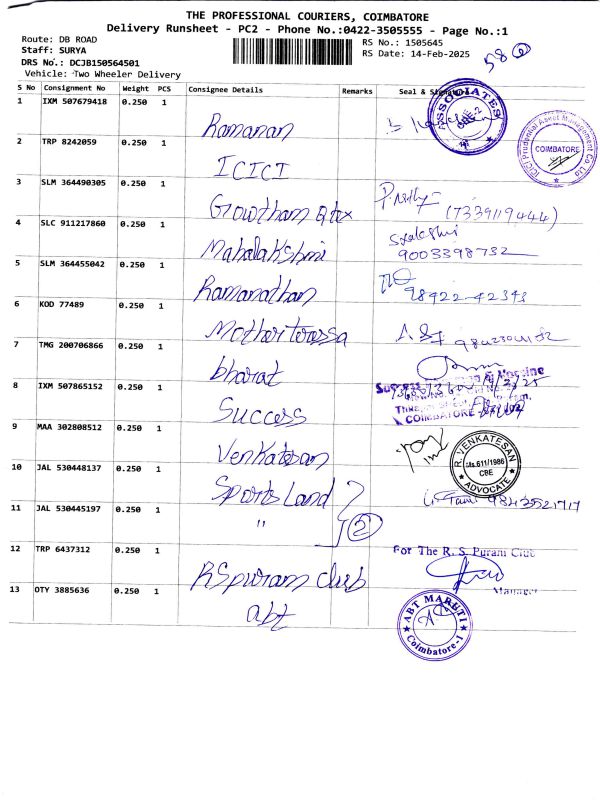 THE PROFESSIONAL COURIERS, COIMBATORE
Delivery Runsheet - PC2 - Phone No.:0422-3505555 - Page No.:1
Route: DB ROAD RS No.: 1505645
Staff: SURYA RS Date: 14-Feb-2025
DRS No.: DCJB150564501
Vehicle: Two Wheeler Delivery
58
S No Consignment No Weight PCS Consignee Details Remarks Seal & Signature
1 IXM 507679418 0.250 1 Ramanan
ASSOCIATES
2 TRP 8242059 0.250 1 ICICI
ICICI Prudential Asset Management Co Ltd
COIMBATORE
3 SLM 364490305 0.250 1 Growtham (7339119444)
4 SLC 911217860 0.250 1 Mahalakshmi 9003398732
5 SLM 364455042 0.250 1 Ramanathan 98422-42343
6 KOD 77489 0.250 1 Mother
7 TMG 200706866 0.250 1 bharat
8 IXM 507865152 0.250 1 Success
Success
COIMBATORE
9 MAA 302808512 0.250 1 Venkatesan
R. VENKATESAN
Ms.611/1986
CBE
ADVOCATE
10 JAL 530448137 0.250 1 Sports Land 9843521717
11 JAL 530445197 0.250 1 " 2
12 TRP 6437312 0.250 1 RSpuram club
For The R. S. Puram Club
Manager
13 OTY 3885636 0.250 1 abt
ABT MARUTI
Coimbatore-1